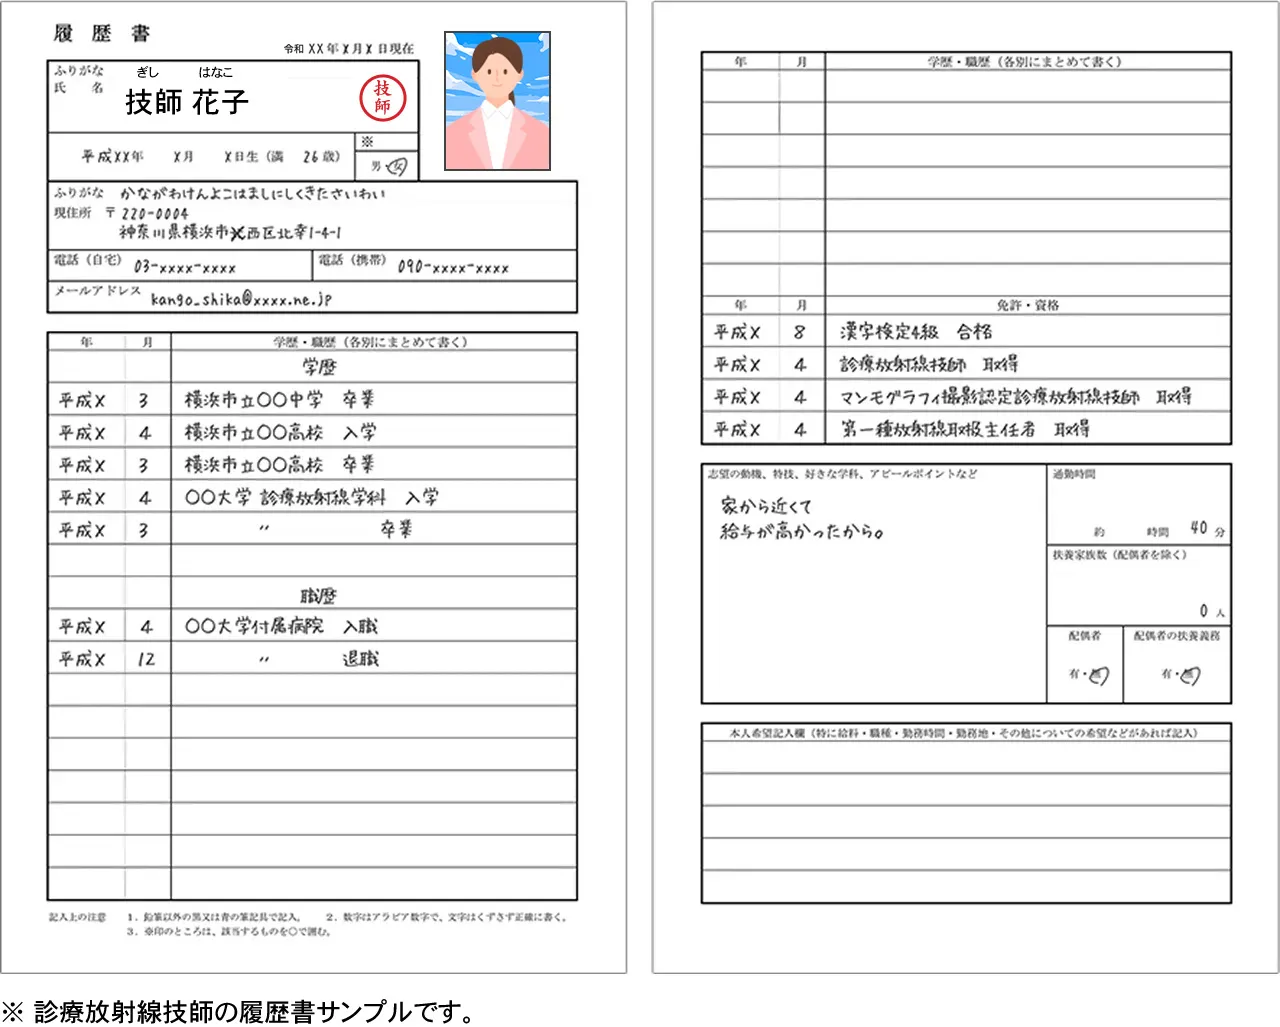 履 歴 書
令和 XX 年 X 月 X 日現在
ふりがな ぎし はなこ
氏 名 技師 花子
技師
平成XX年 X月 X日生（満 26 歳）
※
男・女
ふりがな かながわけんよこはましにしくきたさいわい
現住所 〒220-0004
神奈川県横浜市西区北幸1-4-1
電話（自宅） 03-xxxx-xxxx
電話（携帯） 090-xxxx-xxxx
メールアドレス kango_shika@xxxx.ne.jp
年 月 学歴・職歴（各別にまとめて書く）
学歴
平成X 3 横浜市立〇〇中学 卒業
平成X 4 横浜市立〇〇高校 入学
平成X 3 横浜市立〇〇高校 卒業
平成X 4 〇〇大学 診療放射線学科 入学
平成X 3 〃 卒業
職歴
平成X 4 〇〇大学付属病院 入職
平成X 12 〃 退職
記入上の注意 1．鉛筆以外の黒又は青の筆記具で記入。 2．数字はアラビア数字で、文字はくずさず正確に書く。
3．※印のところは、該当するものを〇で囲む。
年 月 学歴・職歴（各別にまとめて書く）
年 月 免許・資格
平成X 8 漢字検定4級 合格
平成X 4 診療放射線技師 取得
平成X 4 マンモグラフィ撮影認定診療放射線技師 取得
平成X 4 第一種放射線取扱主任者 取得
志望の動機、特技、好きな学科、アピールポイントなど
家から近くて
給与が高かったから。
通勤時間
約 時間 40 分
扶養家族数（配偶者を除く）
0 人
配偶者
有・無
配偶者の扶養義務
有・無
本人希望記入欄（特に給料・職種・勤務時間・勤務地・その他についての希望などがあれば記入）
※ 診療放射線技師の履歴書サンプルです。